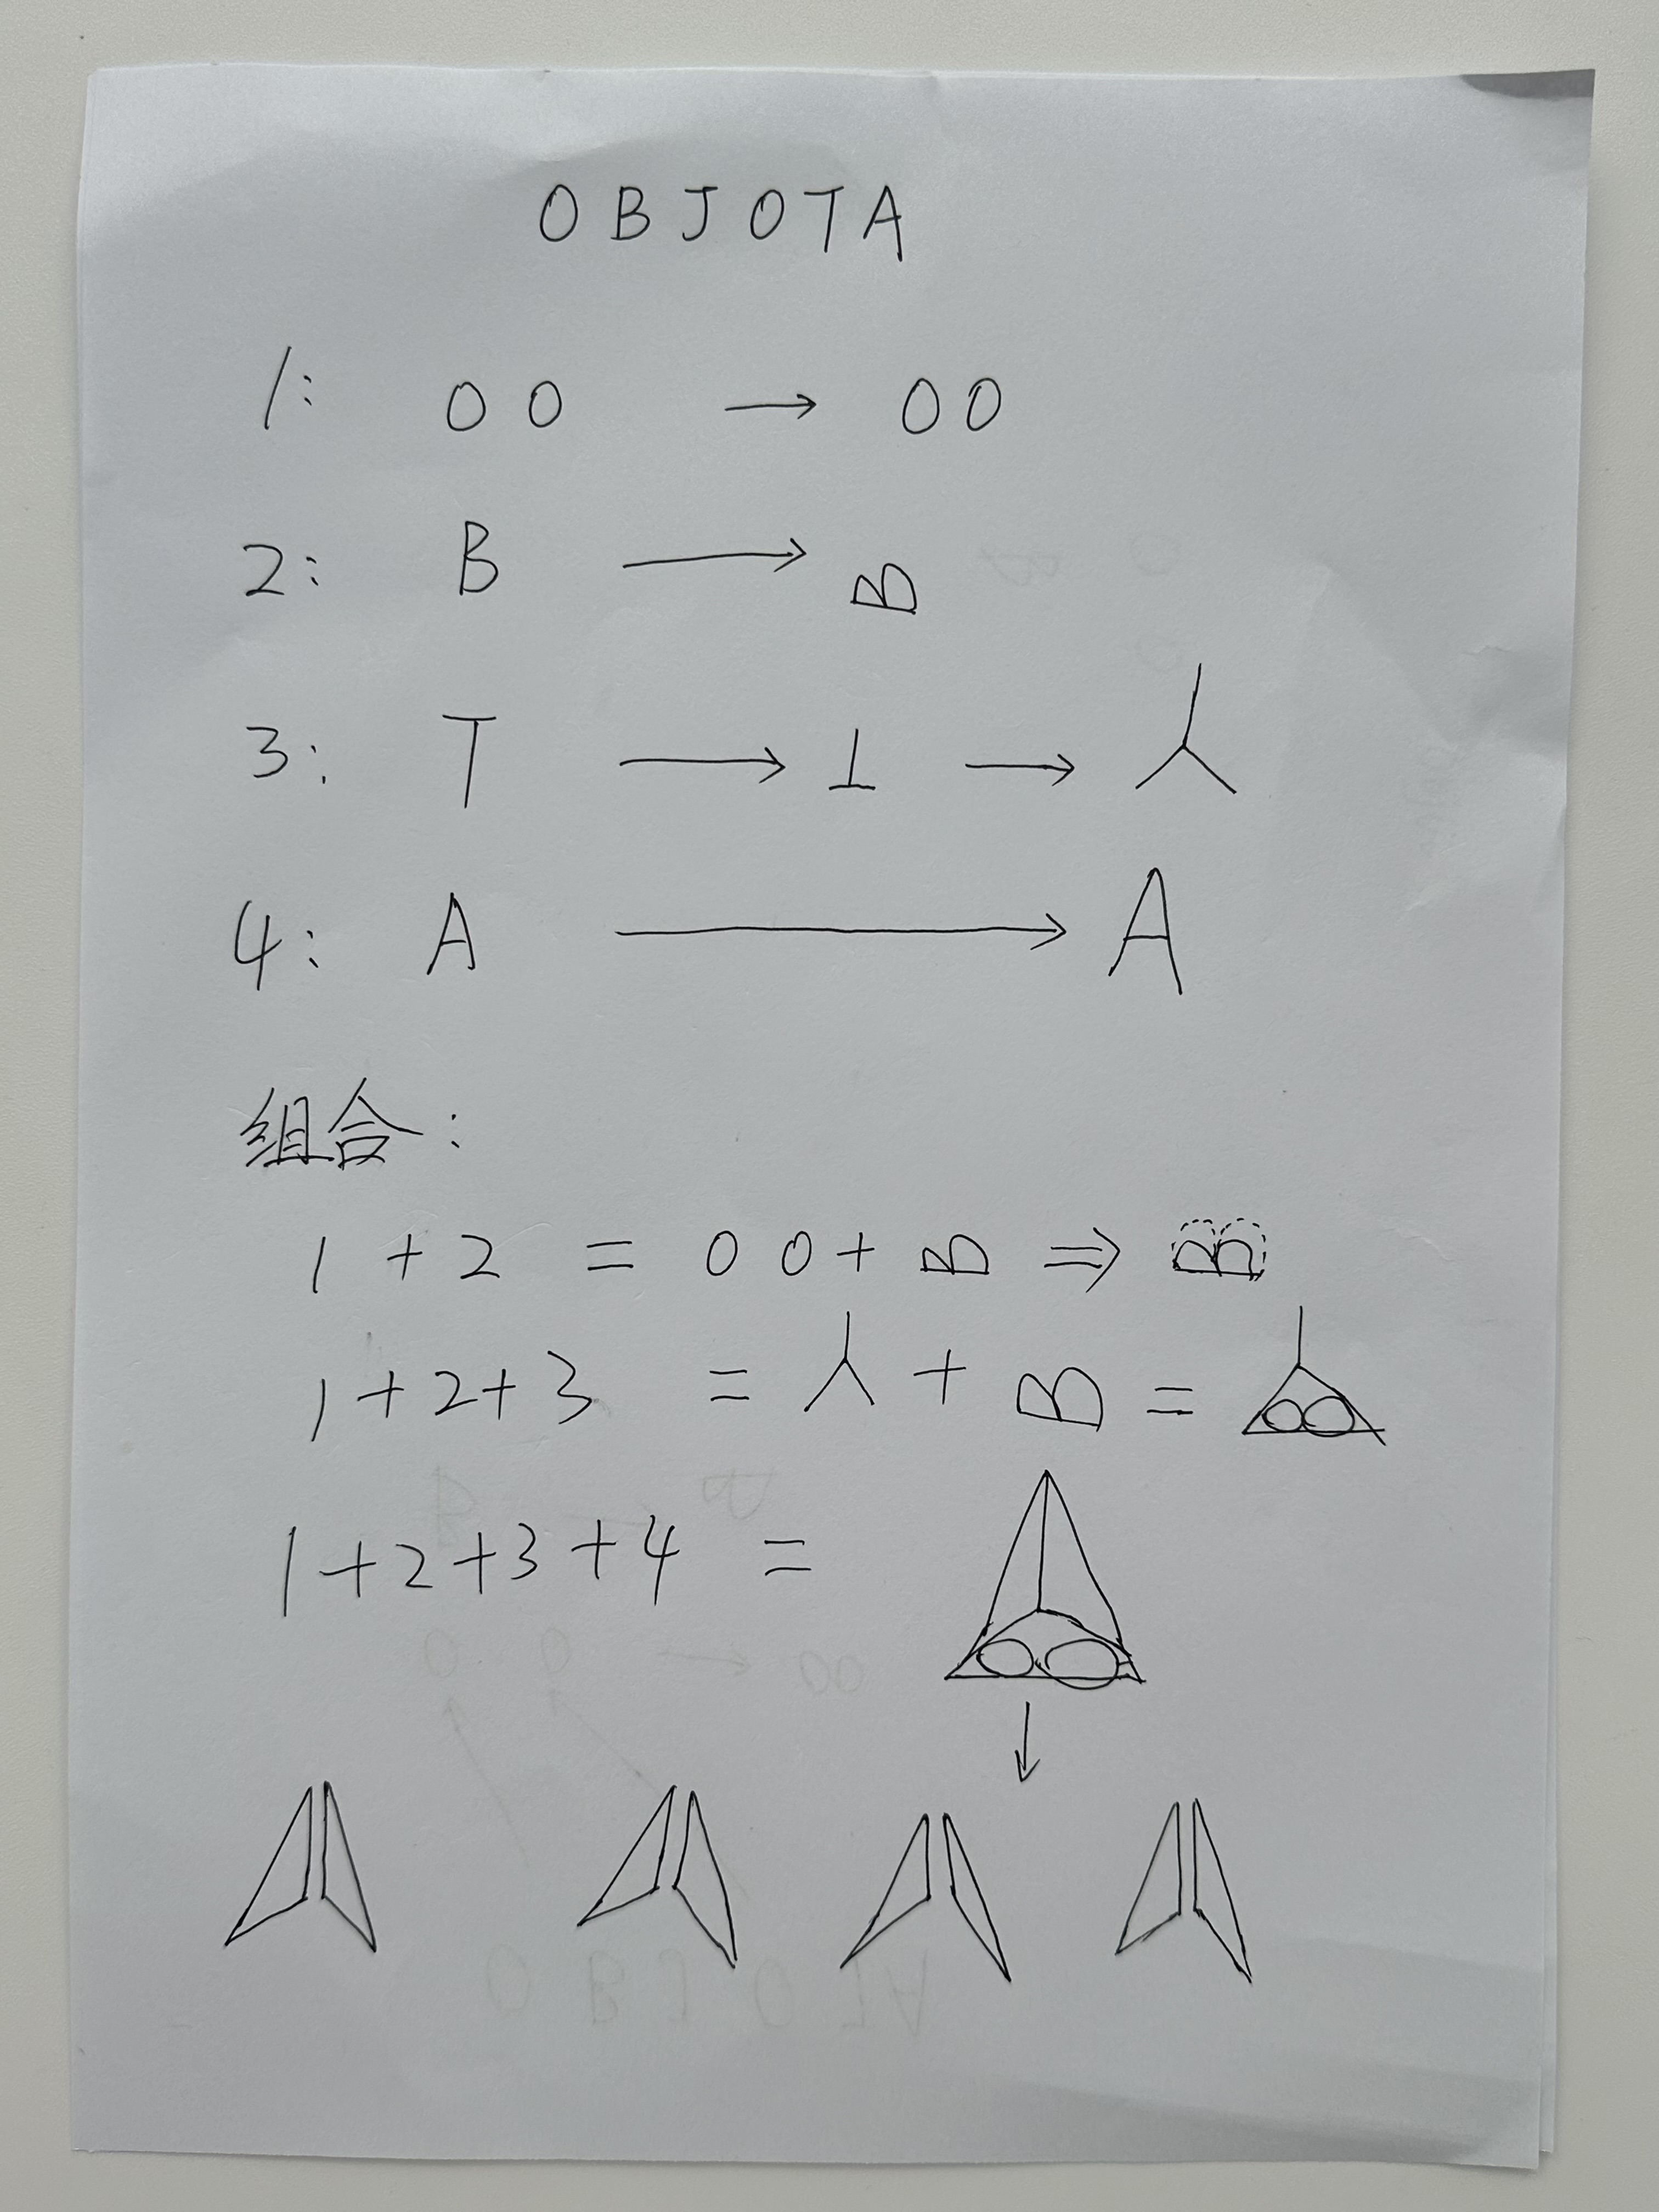 OBJOTA
1: OO → OO
2: B → B
3: T → ⊥ → 人
4: A → A
组合:
1+2 = OO+B ⇒ B
1+2+3 = 人 + B =
1+2+3+4 =